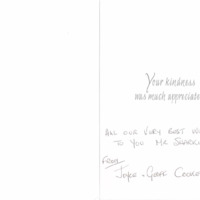 Your kindness
was much appreciated
ALL OUR VERY BEST
TO YOU MR
FROM
JOYCE + GEOFF